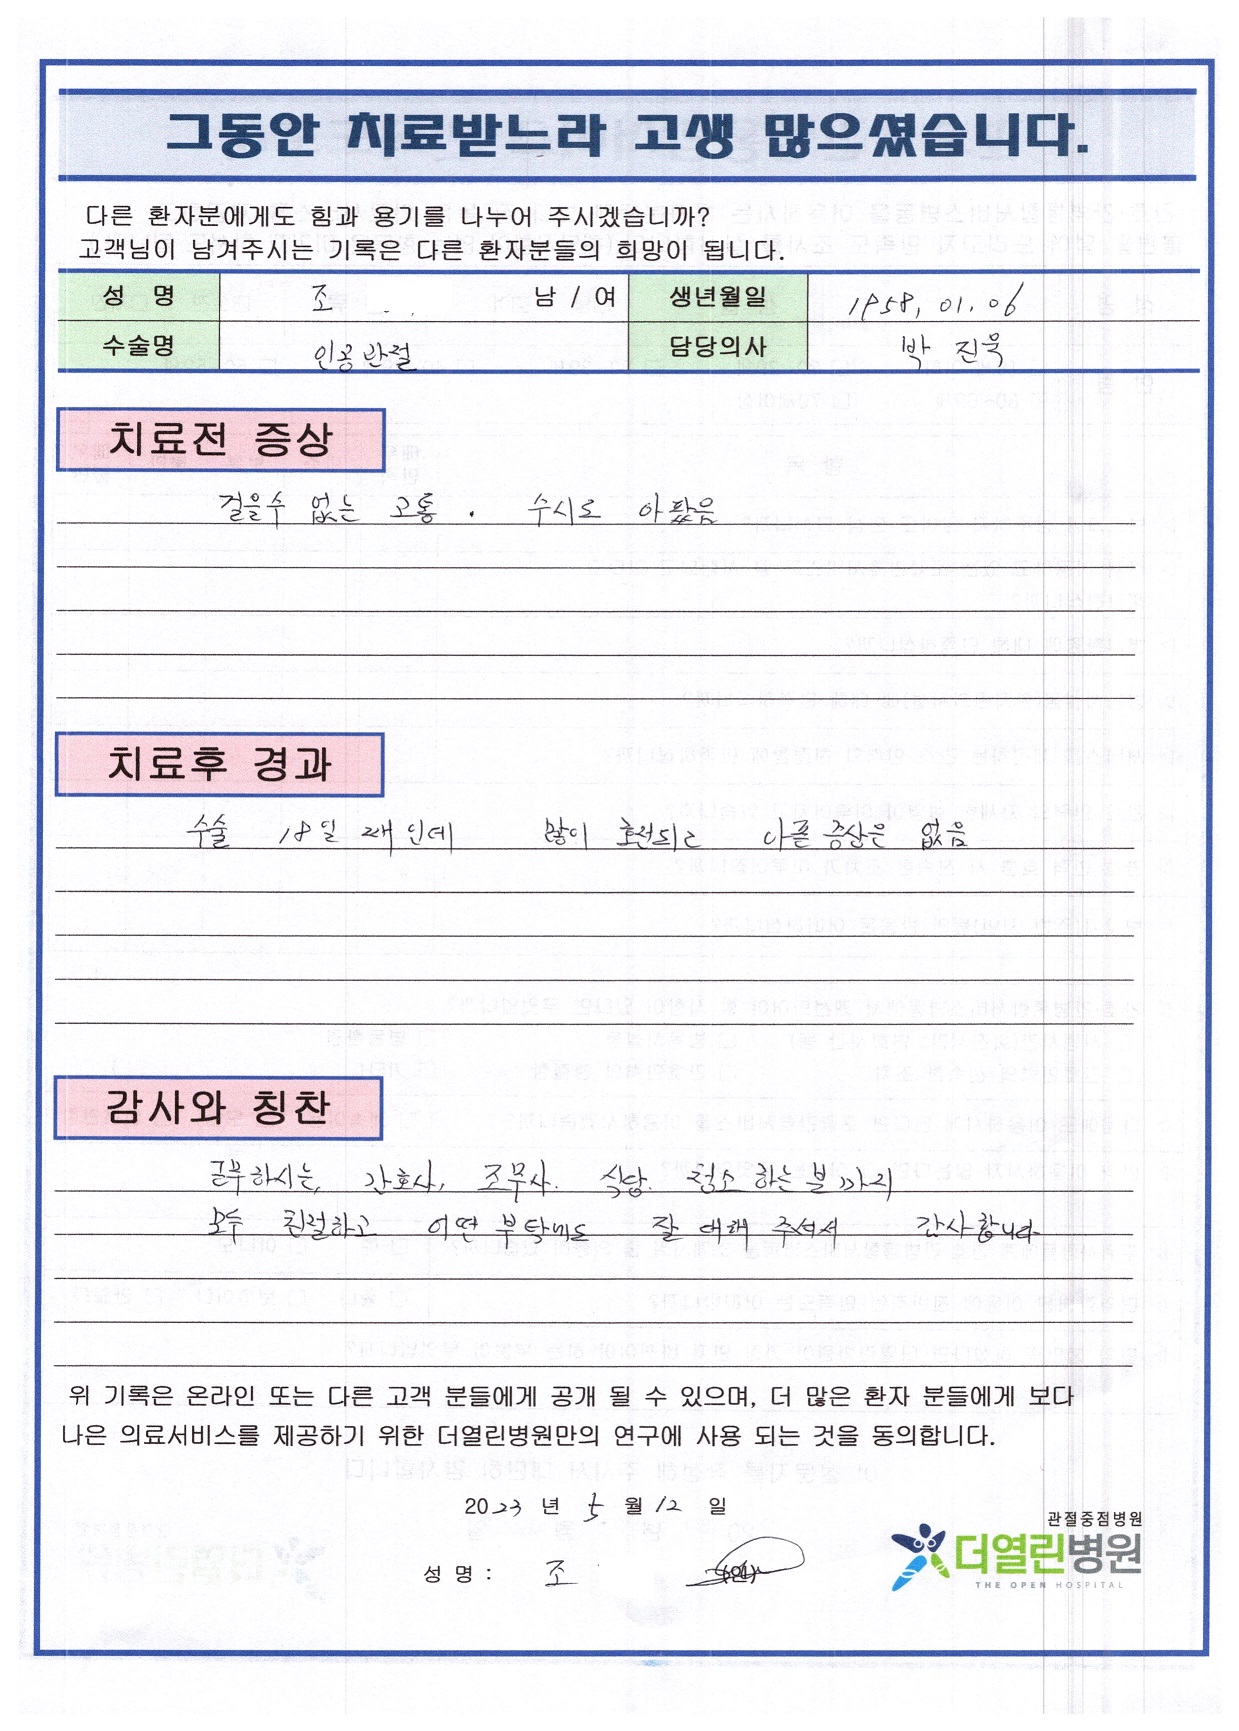 그동안 치료받느라 고생 많으셨습니다.
다른 환자분에게도 힘과 용기를 나누어 주시겠습니까?
고객님이 남겨주시는 기록은 다른 환자분들의 희망이 됩니다.
성 명 조 남 / 여 생년월일 1958, 01. 06
수술명 인공관절 담당의사 박 진욱
치료전 증상
걸을수 없는 고통. 수시로 아팠음
치료후 경과
수술 18일 째인데 많이 호전되고 아픈 증상은 없음
감사와 칭찬
하시는, 간호사, 조무사. 식당. 청소 하는 분까지
모두 친절하고 어떤 부탁에도 잘 대해 주셔서 감사합니다
위 기록은 온라인 또는 다른 고객 분들에게 공개 될 수 있으며, 더 많은 환자 분들에게 보다
나은 의료서비스를 제공하기 위한 더열린병원만의 연구에 사용 되는 것을 동의합니다.
2023 년 5 월 12 일
성 명 : 조 (인)
관절중점병원
더열린병원
THE OPEN HOSPITAL